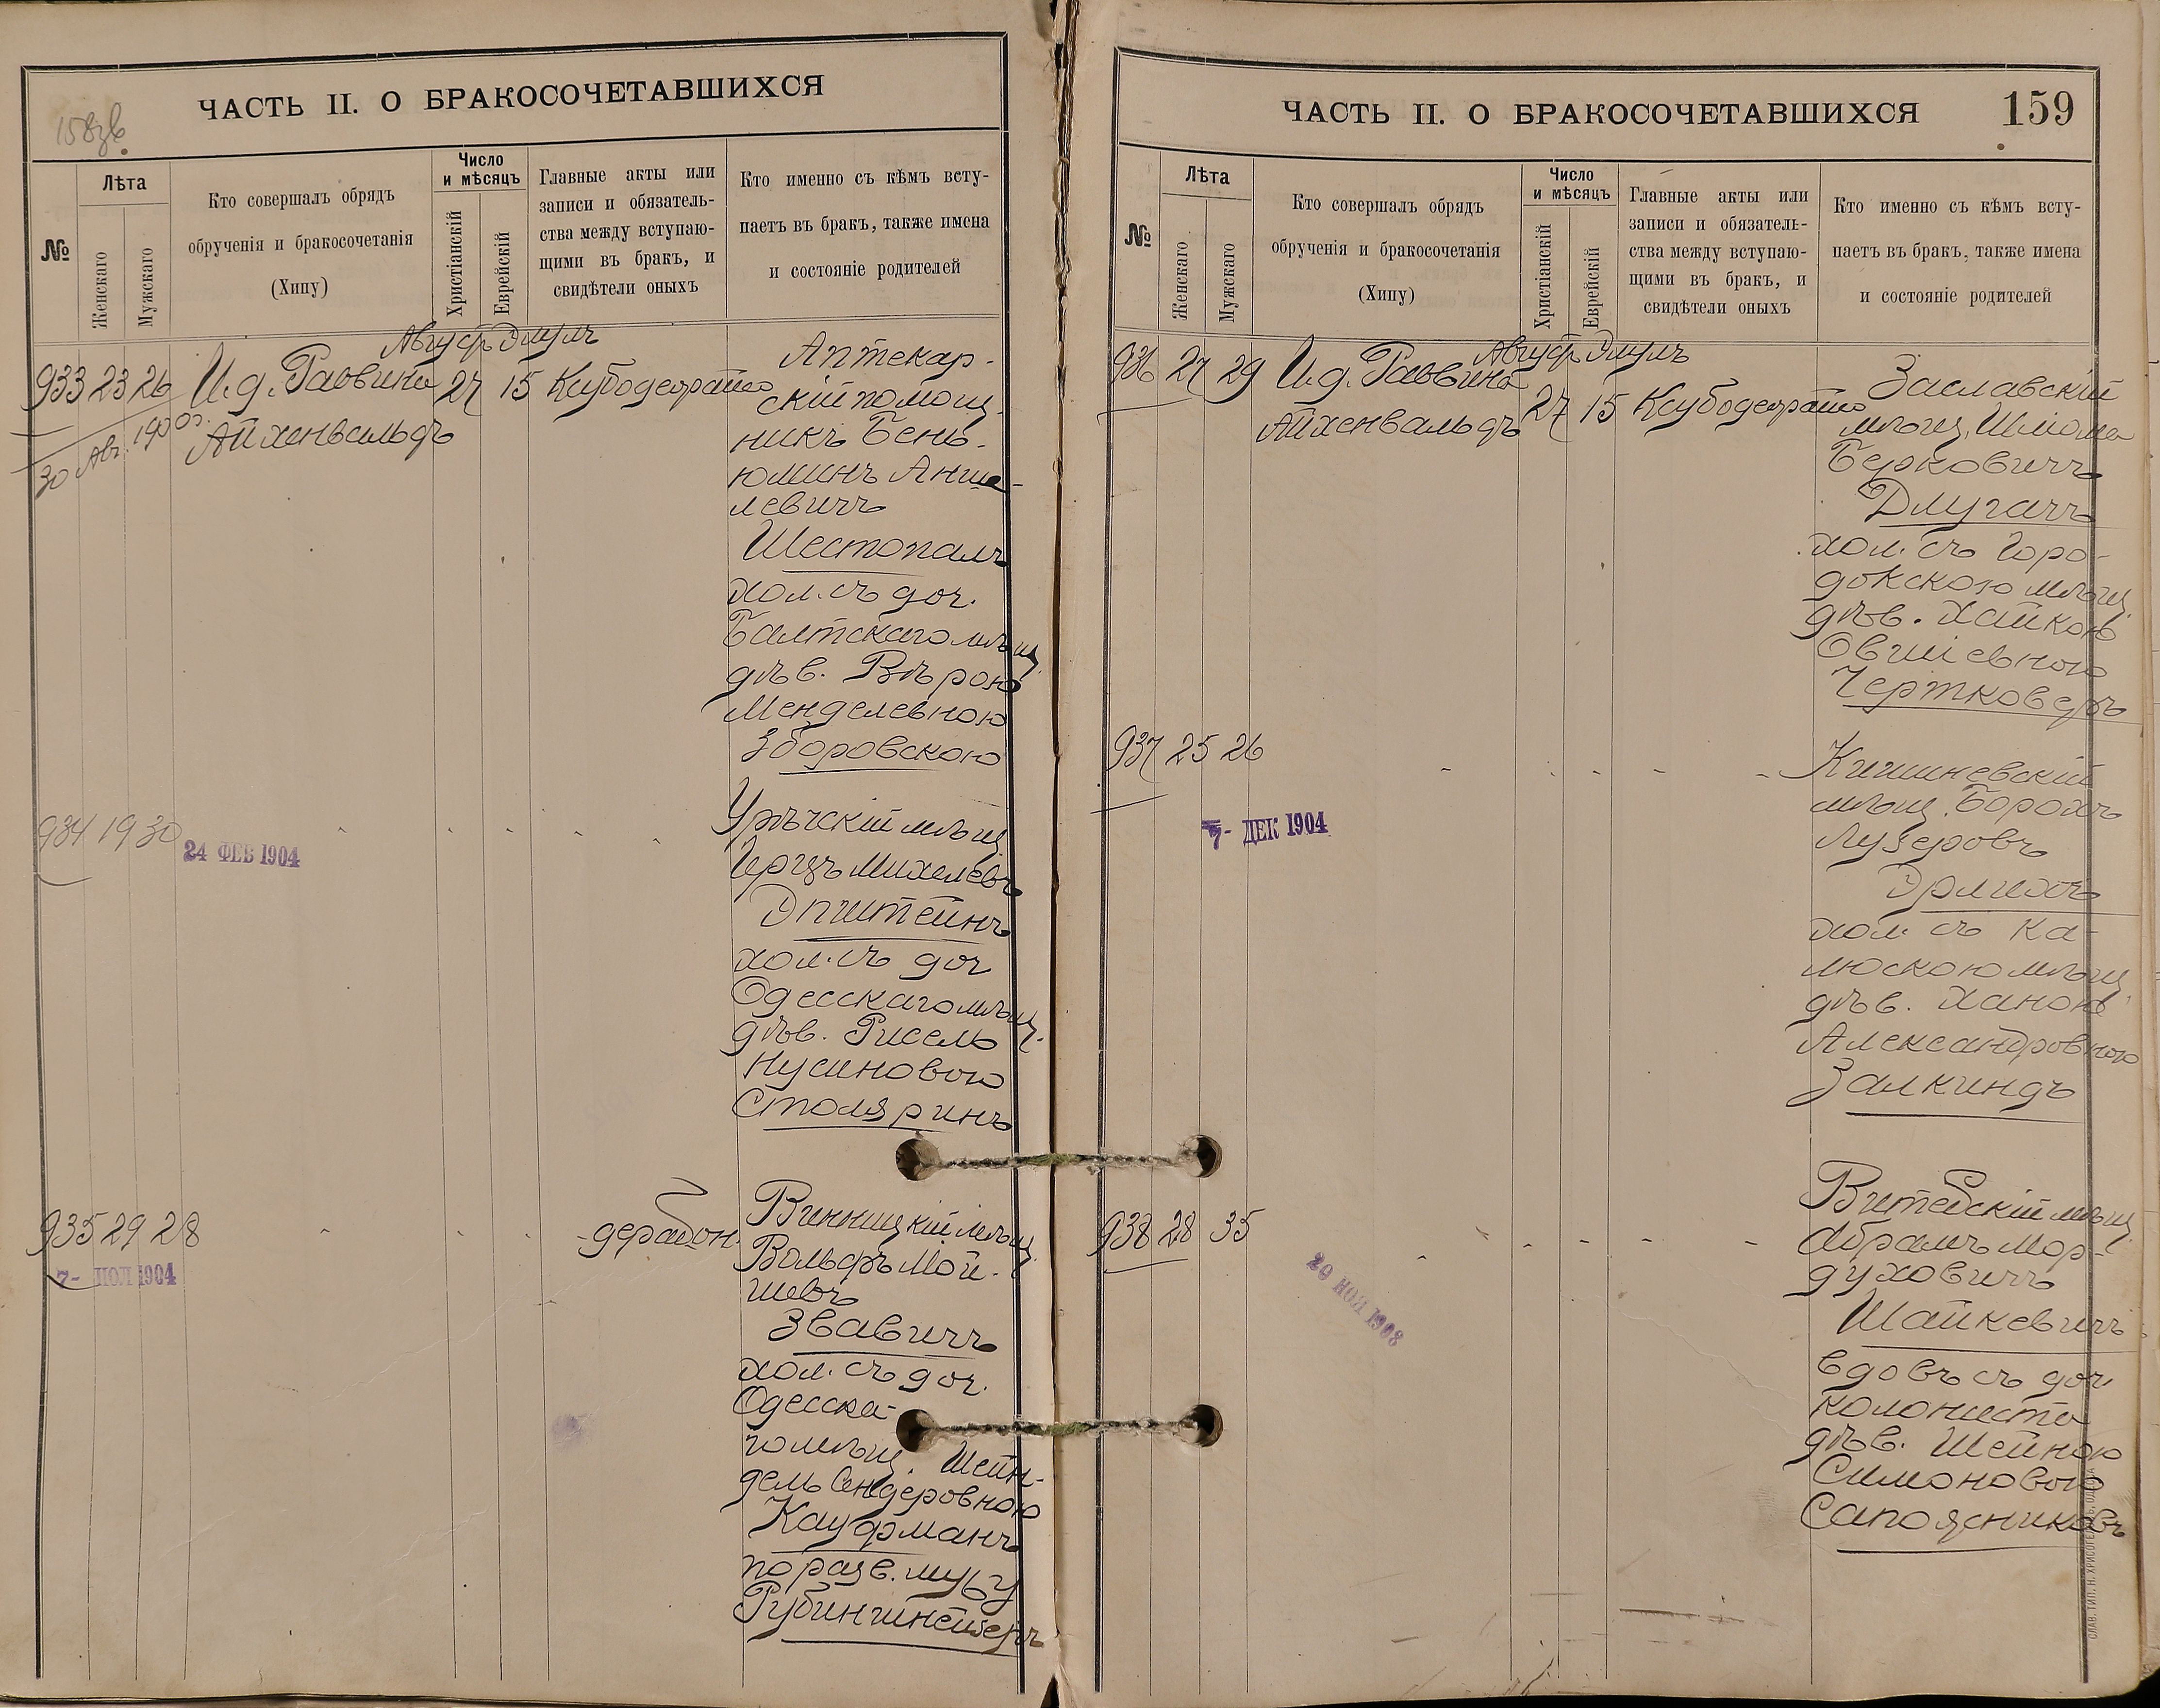 ЧАСТЬ II. О БРАКОСОЧЕТАВШИХСЯ
№
Лѣта
Женскаго
Мужскаго
Кто совершалъ обрядъ
обрученія и бракосочетанія
(Хипу)
Число
и мѣсяцъ
Христіанскій
Еврейскій
Главные акты или
записи и обязатель-
ства между вступаю-
щими въ бракъ, и
свидѣтели оныхъ
Кто именно съ кѣмъ всту-
паетъ въ бракъ, также имена
и состояніе родителей
Август Элулъ
933 23 26 И.д. Раввина 27 15
Айхенвальдъ
30 Авг. 1900
Аптекар-
скій помощ-
никъ Бень-
юминъ Анше-
левичъ
Шестопалъ
хол. съ доч.
Балтскаго мѣщ.
дѣв. Вѣрою
Менделевною
Зборовскою
934 19 30
24 ФЕВ 1904
Урѣчскій мѣщ.
Герцъ Михелевъ
Эпштейнъ
хол. съ доч
Одесскаго мѣщ.
дѣв. Рисель
Нусиновою
Столяринъ
935 29 28
7- ИЮЛ 1904
Винницкій мѣщ.
Вольфъ Мой-
шевъ
Звавичъ
хол. съ доч.
Одесска-
го мѣщ. Шейн-
дель Сендеровною
Кауфманъ
по разв. мужу
ЧАСТЬ II. О БРАКОСОЧЕТАВШИХСЯ 159
№
Лѣта
Женскаго
Мужскаго
Кто совершалъ обрядъ
обрученія и бракосочетанія
(Хипу)
Число
и мѣсяцъ
Христіанскій
Еврейскій
Главные акты или
записи и обязатель-
ства между вступаю-
щими въ бракъ, и
свидѣтели оныхъ
Кто именно съ кѣмъ всту-
паетъ въ бракъ, также имена
и состояніе родителей
Август Элулъ
936 27 29 И.д. Раввина 27 15
Айхенвальдъ
Заславскій
мѣщ. Шлiома
Берковичъ
Длугачъ
хол. съ Горо-
докскою мѣщ.
дѣв. Хайкою
Овшіевною
Чертковеръ
937 25 26
7- ДЕК 1904
Кишиневскій
мѣщ. Борохъ
Лузеровъ
Эрлихъ
хол. съ Ка-
люскою мѣщ.
дѣв. Ханою
Александровною
Залкиндъ
938 28 35
Витебскій мѣщ.
Абрамъ Мор-
духовичъ
Шайкевичъ
вдовъ съ доч
колониста
дѣв. Шейною
Симоновою
Сапожниковъ